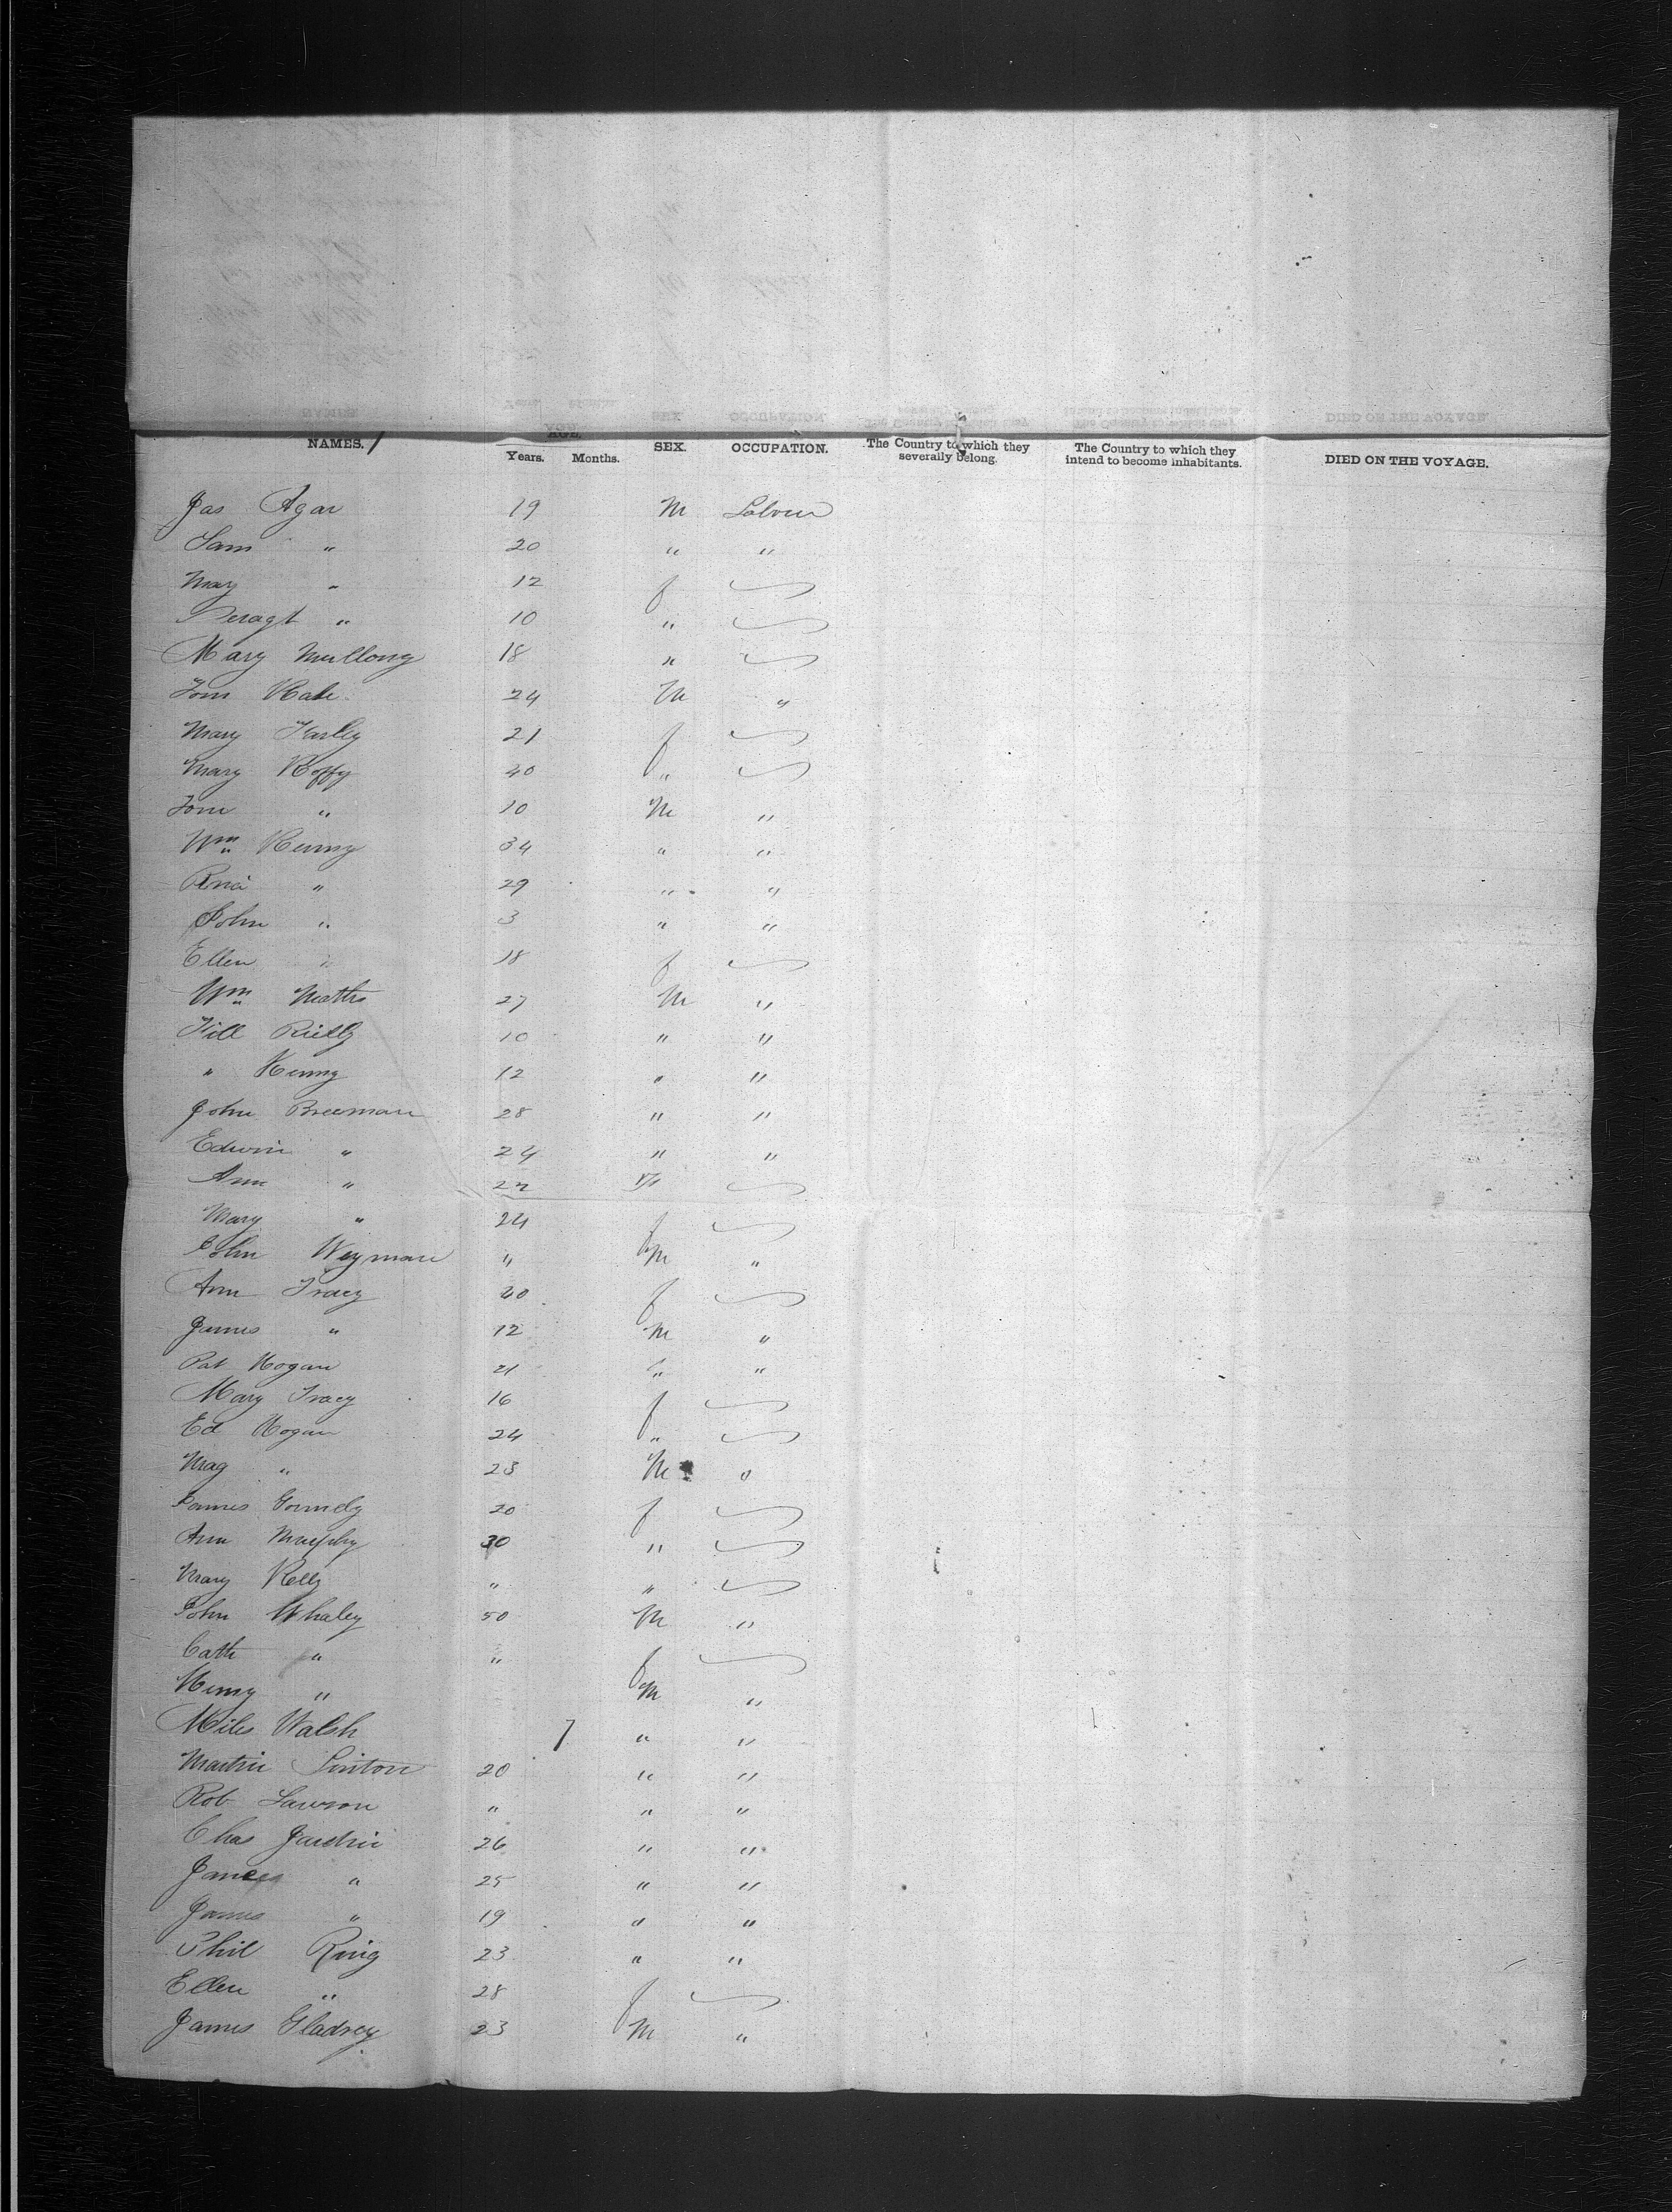 NAMES. AGE. Years. Months. SEX. OCCUPATION. The Country to which they severally belong. The Country to which they intend to become inhabitants. DIED ON THE VOYAGE.
Jas Agar 19 M Labour
Sam " 20 " "
May " 12 f
" 10 "
Mary 18 "
Tom 24 M "
Mary Farley 21 f
Mary 40 "
Tom " 10 M "
Wm Kenny 34 " "
" 29 " "
John " 3 " "
Ellen " 18 f
Wm 27 M "
Rielly 10 " "
" 12 " "
John Breeman 28 " "
Edwin " 24 " "
Ann " 22
Mary " 24 f
John Weyman " M "
Ann Tracy 40 f
James " 12 M "
Pat Hogan 21 " "
Mary Tracy 16 f
Ed Hogan 24 "
Mag " 23 M "
James 20 f
Ann Murphy 30 "
Mary Kelly " "
John Whaley 50 M "
Cath " " f
Henry " M "
Miles Walsh 7 " "
Martin 20 " "
Rob Lawson " " "
Chas 26 " "
James " 25 " "
James " 19 " "
Phil Ring 23 " "
Ellen " 28 f
James 23 M "